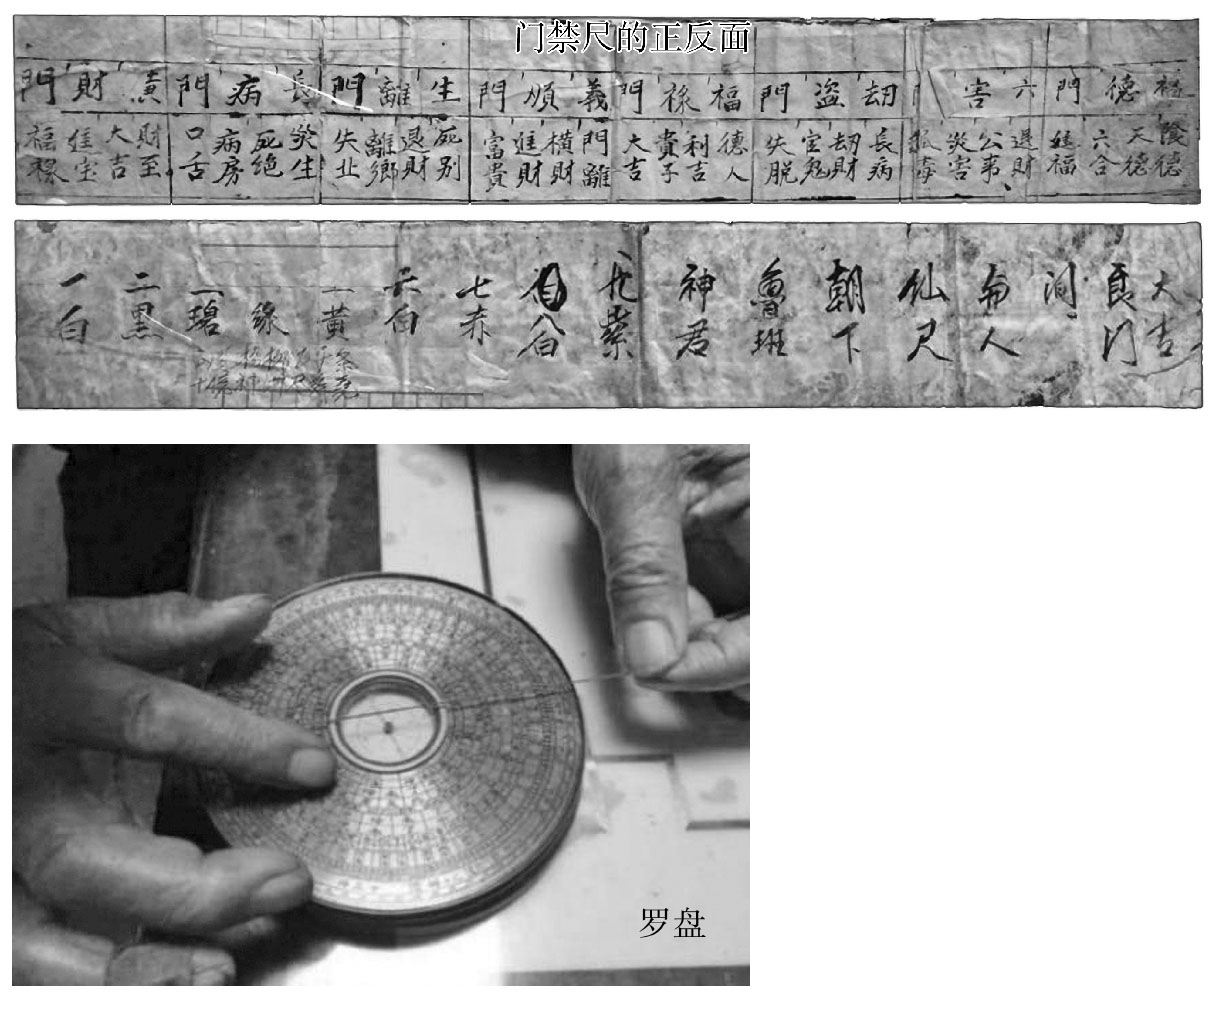 门禁尺的正反面
門財黄 門病長 門離生 門順義 門祿福 門盗劫 害六 門德祿
福祿 進宝 大吉 財至 口舌 病房 死绝 災生 失北 離鄉 退財 死别 富貴 進財 横財 門離 大吉 貴子 利吉 德人 失脱 官鬼 劫財 長病 孤寡 災害 公事 退財 進福 六合 天德 陰德
一白 二黑 碧 綠 黃 六白 七赤 八白 九紫 神君 魯班 朝下 仙尺 人 良门 大吉
罗盘